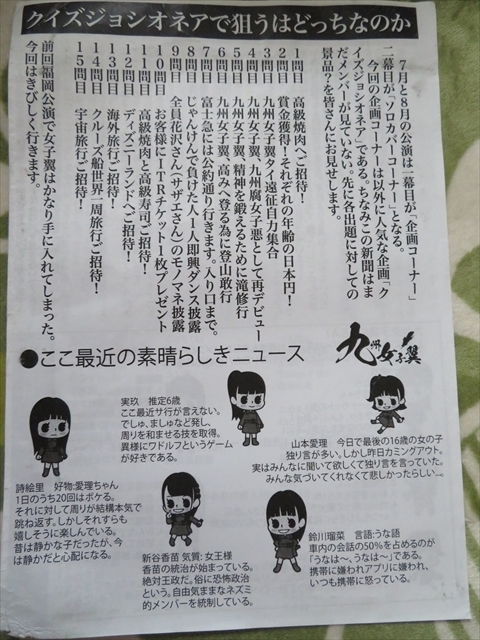 クイズジョシオネアで狙うはどっちなのか
7月と8月の公演は一幕目が「企画コーナー」
二幕目が「ソロカバーコーナー」となる。
今回の企画コーナーは以外に人気な企画「ク
イズジョシオネア」である。ちなみこの新聞はま
だメンバーが見ていない。先に各出題に対しての
景品?を皆さんにお見せします。
1問目 高級焼肉ご招待!
2問目 賞金獲得!それぞれの年齢の日本円!
3問目 九州女子翼タイ遠征自力集合
4問目 九州女子翼、九州腐女子悪として再デビュー
5問目 九州女子翼、精神を鍛えるために滝修行
6問目 九州女子翼、高みへ登る為に登山敢行
7問目 富士急には公約通り行きます。入り口まで。
8問目 じゃんけんで負けた人1人即興ダンス披露
9問目 全員花沢さん(サザエさん)のモノマネ披露
10問目 お客様に1TRチケット1枚プレゼント
11問目 高級焼肉と高級寿司ご招待!
12問目 ディズニーランドへご招待!
13問目 海外旅行ご招待!
14問目 クルーズ船世界一周旅行ご招待!
15問目 宇宙旅行ご招待!
前回福岡公演で女子翼はかなり手に入れてしまった。
今回はきびしく行きます。
九州女子翼
●ここ最近の素晴らしきニュース
実玖 推定6歳
ここ最近サ行が言えない。
でしゅ、ましゅなど発し、
周りを和ませる技を取得。
異様にワドルフというゲーム
が好きである。
山本愛理 今日で最後の16歳の女の子
独り言が多い。しかし昨日カミングアウト。
実はみんなに聞いて欲しくて独り言を言っていた。
みんな気づいてくれなくて悲しかったらしい…。
詩絵里 好物:愛理ちゃん
1日のうち20回はボケる。
それに対して周りが結構本気で
跳ね返す。しかしそれすらも
嬉しそうに楽しんでいる。
昔は静かな子だったが、今
は静かだと心配になる。
新谷香苗 気質:女王様
香苗の統治が始まっている。
絶対王政だ。俗に恐怖政治
という。自由気ままなネズミ
的メンバーを統制している。
鈴川瑠菜 言語:うな語
車内の会話の50%を占めるのが
「うなは~、うなは~」である。
携帯に嫌われアプリに嫌われ、
いつも携帯に怒っている。